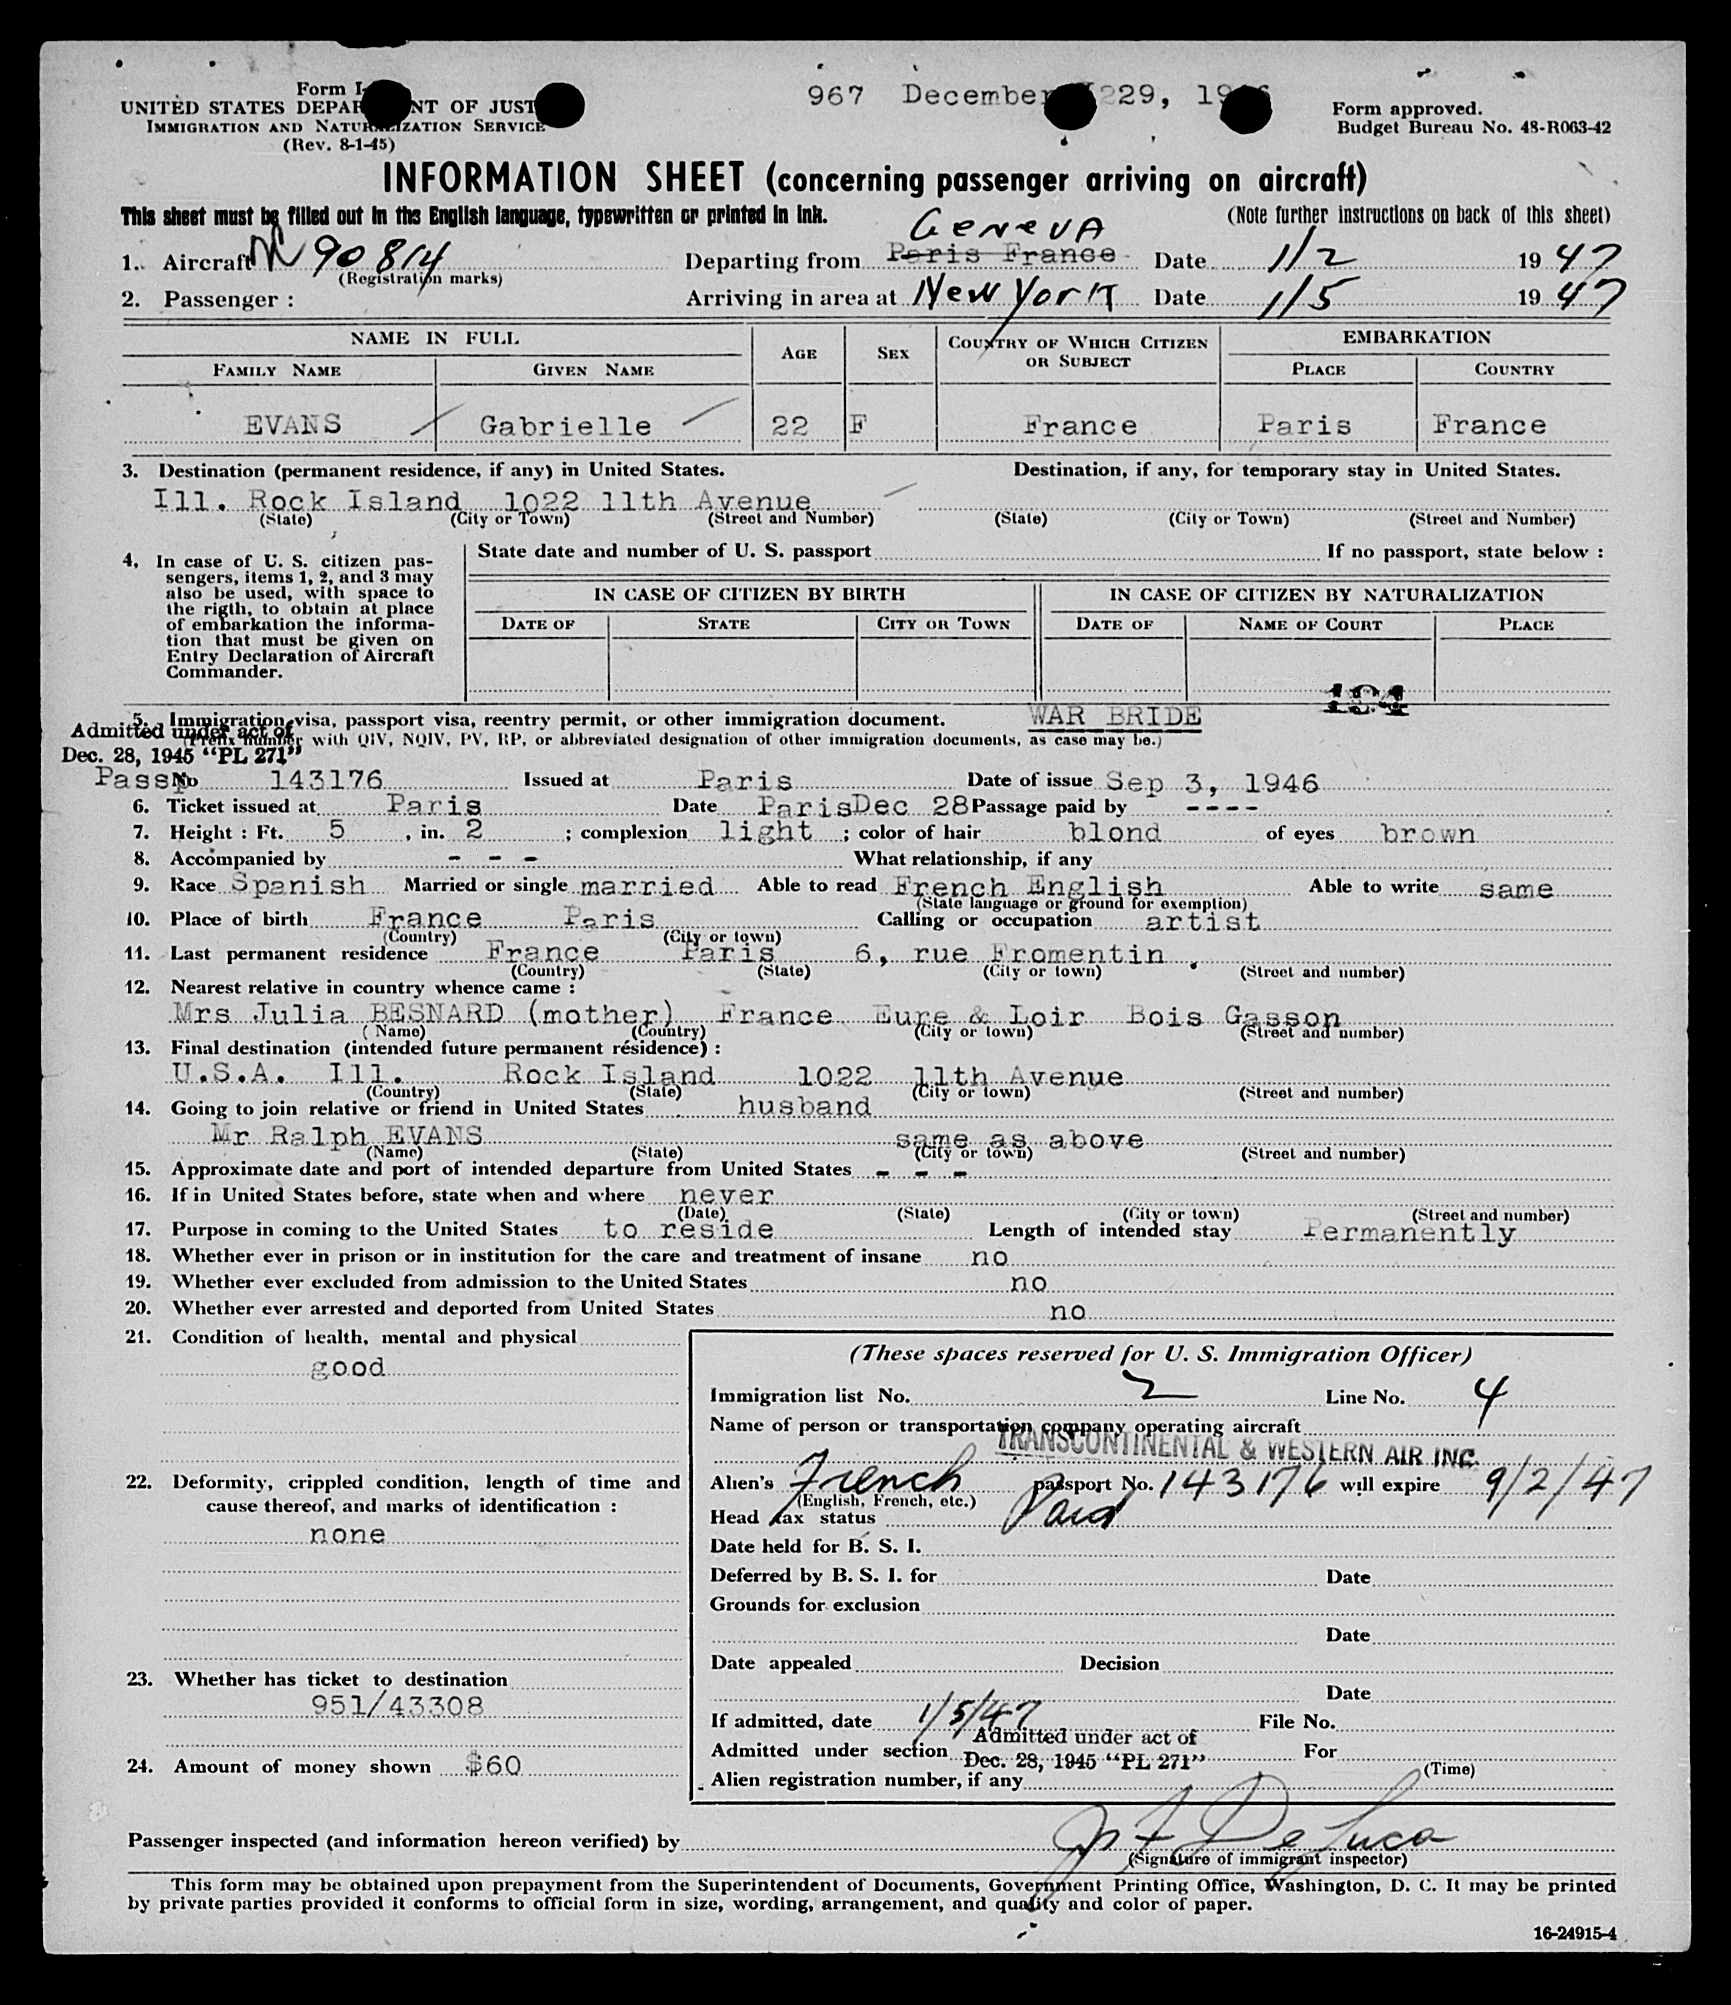 967 December 229, 19
Form I-
UNITED STATES DEPAR NT OF JUST
IMMIGRATION AND NATURALIZATION SERVICE
(Rev. 8-1-45)
Form approved.
Budget Bureau No. 48-R063-42
INFORMATION SHEET (concerning passenger arriving on aircraft)
This sheet must be filled out in the English language, typewritten or printed in ink.
(Note further instructions on back of this sheet)
Geneva
1. Aircraft N 90814 Departing from Paris France Date 1/2 19 47
(Registration marks)
2. Passenger : Arriving in area at New York Date 1/5 19 47
NAME IN FULL AGE SEX COUNTRY OF WHICH CITIZEN OR SUBJECT EMBARKATION
FAMILY NAME GIVEN NAME PLACE COUNTRY
EVANS Gabrielle 22 F France Paris France
3. Destination (permanent residence, if any) in United States. Destination, if any, for temporary stay in United States.
Ill. Rock Island 1022 11th Avenue
(State) (City or Town) (Street and Number) (State) (City or Town) (Street and Number)
4, In case of U. S. citizen pas-
sengers, items 1, 2, and 3 may
also be used, with space to
the rigth, to obtain at place
of embarkation the informa-
tion that must be given on
Entry Declaration of Aircraft
Commander.
State date and number of U. S. passport If no passport, state below :
IN CASE OF CITIZEN BY BIRTH IN CASE OF CITIZEN BY NATURALIZATION
DATE OF STATE CITY OR TOWN DATE OF NAME OF COURT PLACE
194
5. Immigration visa, passport visa, reentry permit, or other immigration document. WAR BRIDE
(Prefix number with QIV, NQIV, PV, RP, or abbreviated designation of other immigration documents, as case may be.)
Admitted under act of
Dec. 28, 1945 "PL 271"
Passp No 143176 Issued at Paris Date of issue Sep 3, 1946
6. Ticket issued at Paris Date Paris Dec 28 Passage paid by ----
7. Height : Ft. 5 , in. 2 ; complexion light ; color of hair blond of eyes brown
8. Accompanied by - - - What relationship, if any
9. Race Spanish Married or single married Able to read French English Able to write same
(State language or ground for exemption)
10. Place of birth France Paris Calling or occupation artist
(Country) (City or town)
11. Last permanent residence France Paris 6, rue Fromentin .
(Country) (State) (City or town) (Street and number)
12. Nearest relative in country whence came :
Mrs Julia BESNARD (mother) France Eure & Loir Bois Gasson
( Name) (Country) (City or town) (Street and number)
13. Final destination (intended future permanent résidence) :
U.S.A. Ill. Rock Island 1022 11th Avenue
(Country) (State) (City or town) (Street and number)
14. Going to join relative or friend in United States husband
Mr Ralph EVANS same as above
(Name) (State) (City or town) (Street and number)
15. Approximate date and port of intended departure from United States - - -
16. If in United States before, state when and where never
(Date) (State) (City or town) (Street and number)
17. Purpose in coming to the United States to reside Length of intended stay Permanently
18. Whether ever in prison or in institution for the care and treatment of insane no
19. Whether ever excluded from admission to the United States no
20. Whether ever arrested and deported from United States no
21. Condition of health, mental and physical
good
22. Deformity, crippled condition, length of time and
cause thereof, and marks of identification :
none
23. Whether has ticket to destination
951/43308
24. Amount of money shown $60
(These spaces reserved for U. S. Immigration Officer)
Immigration list No. 2 Line No. 4
Name of person or transportation company operating aircraft
TRANSCONTINENTAL & WESTERN AIR INC.
Alien's French passport No. 143176 will expire 9/2/47
(English, French, etc.)
Head tax status Paid
Date held for B. S. I.
Deferred by B. S. I. for Date
Grounds for exclusion
Date
Date appealed Decision
Date
If admitted, date 1/5/47 File No.
Admitted under section Admitted under act of Dec. 28, 1945 "PL 271" For
(Time)
Alien registration number, if any
Passenger inspected (and information hereon verified) by De Luca
(Signature of immigrant inspector)
This form may be obtained upon prepayment from the Superintendent of Documents, Government Printing Office, Washington, D. C. It may be printed
by private parties provided it conforms to official form in size, wording, arrangement, and quality and color of paper.
16-24915-4